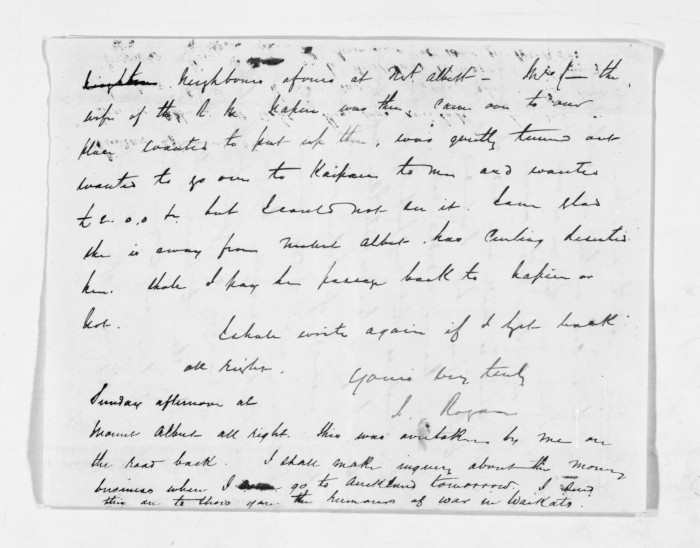 Neighbours of ours at Mt Albert - Mrs the
wife of the R. M. Napier was there, came over to our
place wanted to put up there, was quietly turned out
wanted to go over to Kaipara to me and wanted
but I could not do it. I am glad
she is away from Mount Albert. has deserted
her. shall I pay her passage back to Napier or
not.
I shall write again if I get back
all right.
Yours very truly
J. Rogan
Sunday afternoon at
Mount Albert all right. this was overtaken by me on
the road back. I shall make inquiry about the money
business when I go to Auckland tomorrow. I send
this on to show you the rumours of war in Waikato.